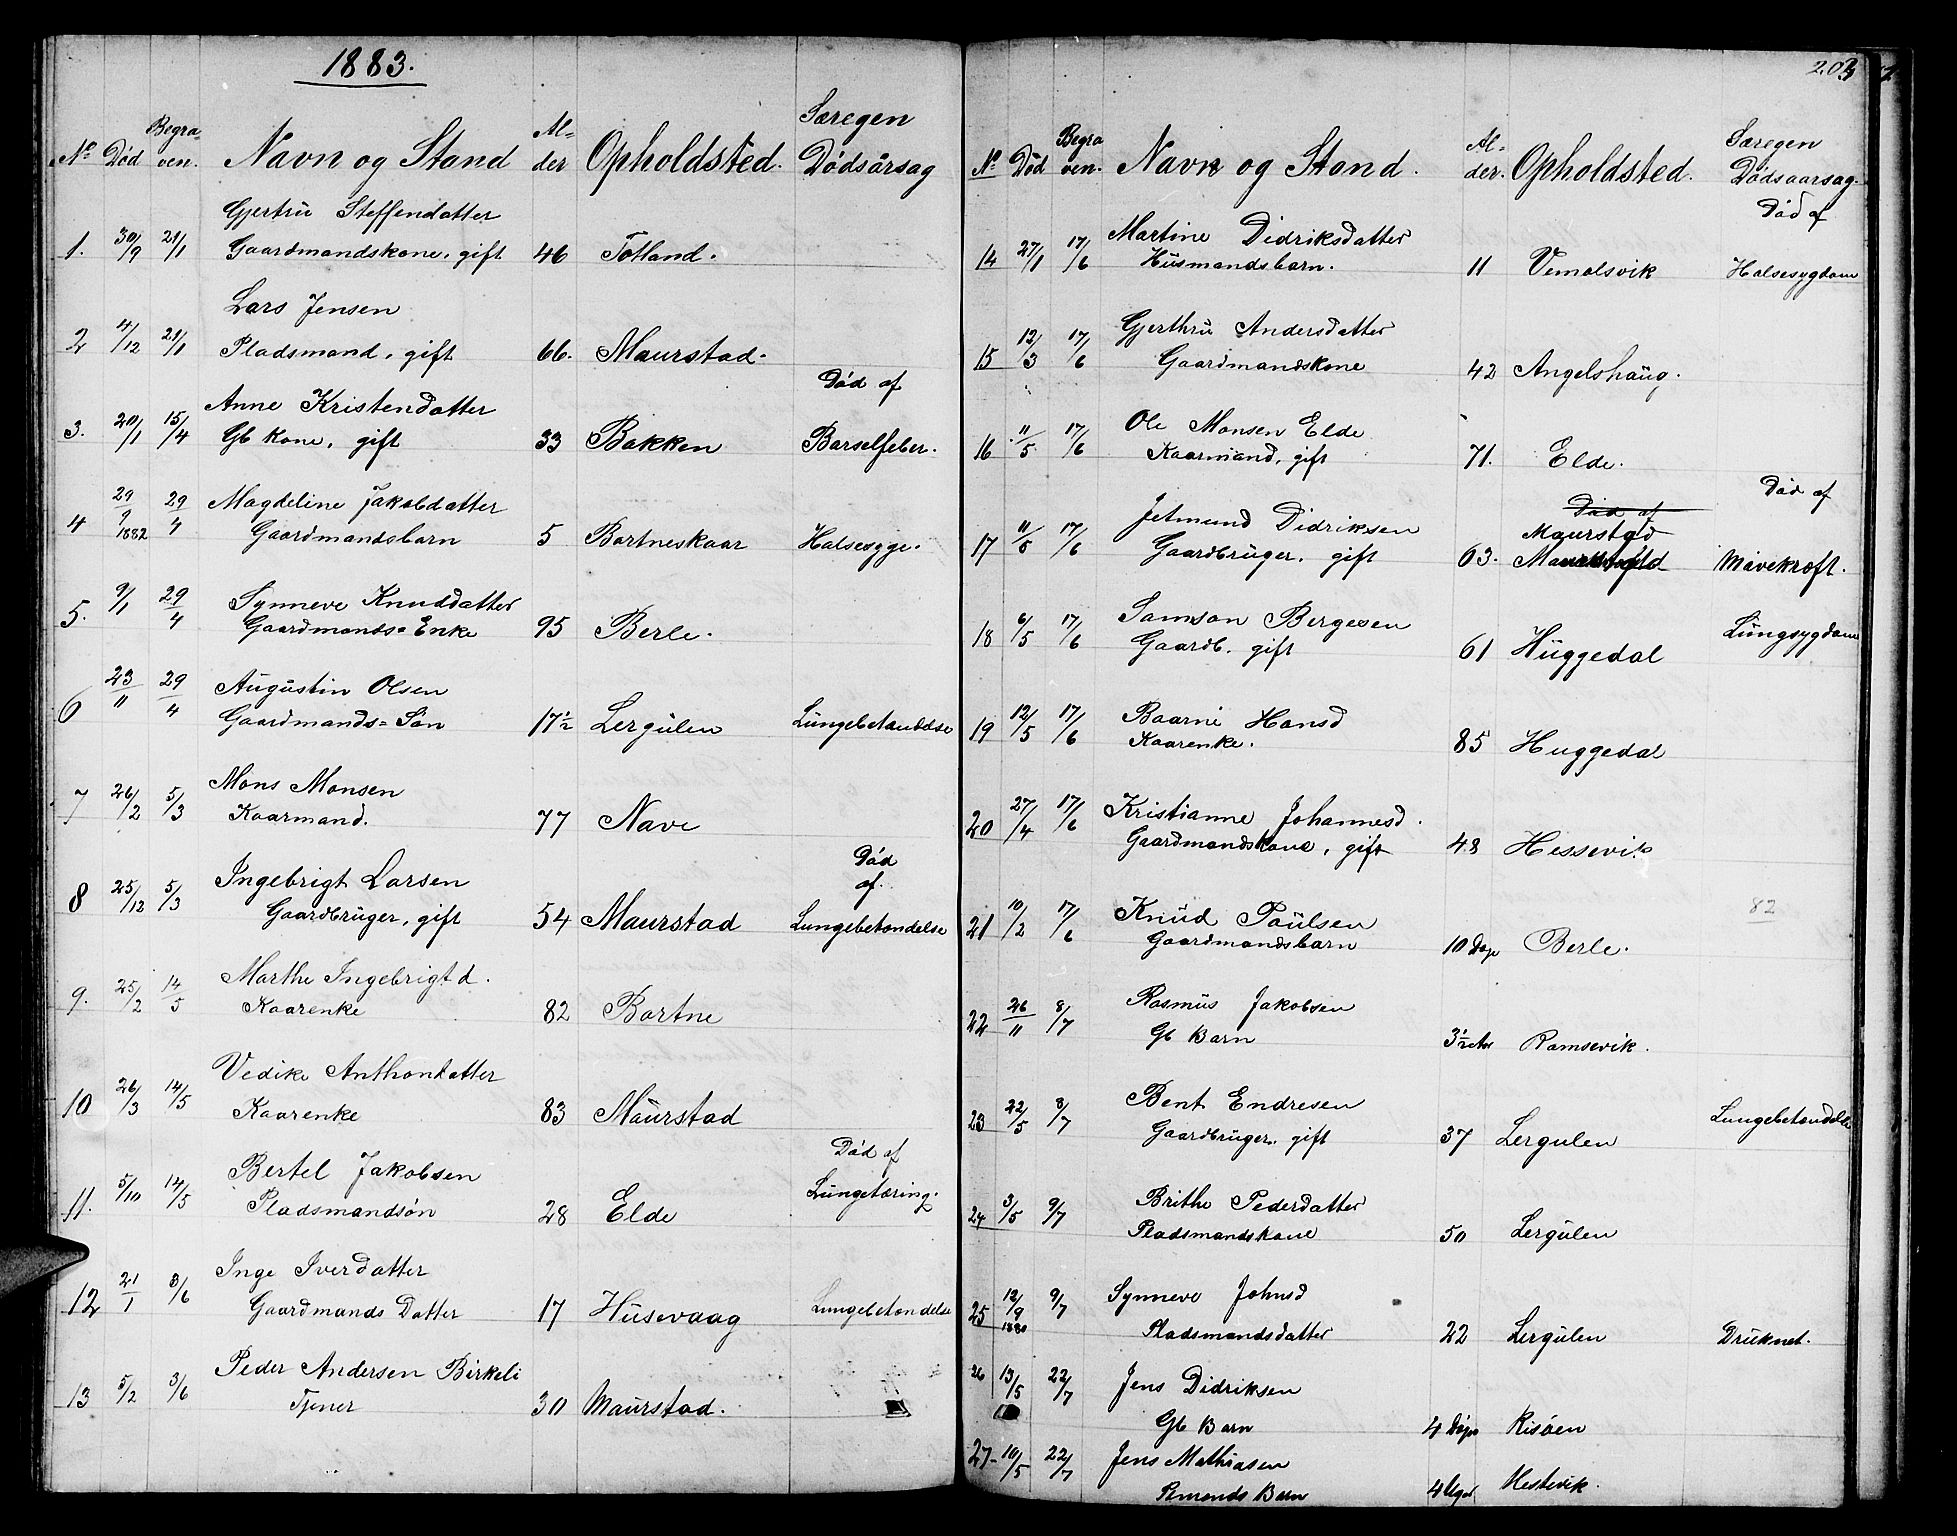 1883.
No Død Begra= ven. Navn og Stand Al= der Opholdsted. Særegen Dødsårsag
1. 30/9 21/1 Gjertrü Steffendatter
Gaardmandskone, gift 46 Totland.
2 4/12 21/1 Lars Jensen
Pladsmand, gift 66. Maurstad.
3. 20/1 15/4 Anne Kristendatter Død af
Gb Kone, gift 33 Bakken Barselfeber.
4 29/9 1882 29/4 Magdeline Jakobdatter
Gaardmandsbarn 5 Bortneskaar Halsesyge.
5. 9/1 29/4 Synneve Knuddatter
Gaardmands=Enke 95 Berle.
6 23/11 29/4 Augüstin Olsen
Gaardmands=Søn 17½ Lergülen Lüngebetændelse
7 26/2 5/3 Mons Monsen
Kaarmand. 77 Nave
8 25/12 5/3 Ingebrigt Larsen Død af.
Gaardbrüger, gift 54 Maurstad Lungebetændelse
9. 25/2 14/5 Marthe Ingebrigtd.
Kaarenke 82 Bortne
10 26/3 14/5 Vedike Anthondatter
Kaarenke 83 Maürstad
11. 5/10 14/5 Bertel Jakobsen Død af
Pladsmandsøn 28 Elde Lüngetæring.
12 21/1 3/6 Inge Iverdatter
Gaardmands Datter 17 Hüsevaag Lungebetændelse
13 5/2 3/6 Peder Andersen Birkeli
Tjener 30 Maürstad.
203
No Død Begra ven. Navn og Stand. Al= der. Opholdsted. Særegen Dødsaarsag.
Død af
14 27/1 17/6 Martine Didriksdatter
Hüsmandsbarn. 11 Vemelsvik Halsesygdom
15 12/3 17/6 Gjerthrü Andersdatter
Gaardmandskone 42 Angelshaüg.
16 11/5 17/6 Ole Monsen Elde
Kaarmand, gift 71. Elde.
17 11/5 17/6 Jetmund Didriksen Død af Død af
Maurstad
Gaardbrüger, gift 63. Mavekræft.
18 6/5 17/6 Samson Bergesen
Gaardb. gift 61 Hüggedal Lüngsygdom
19 12/5 17/6 Baarni Hansd
Kaarenke. 85 Huggedal
20 27/4 17/6 Kristianne Johannesd.
Gaardmandskone, gift 48 Hessevik
21 10/2 17/6 Knüd Paülsen 82
Gaardmandsbarn 10 Dage Berle.
22 26/11 8/7 Rasmüs Jakobsen
Gb Barn 3½ Ramsevik.
23 22/5 8/7 Bent Endresen
Gaardbrüger, gift 37 Lergulen Lungebetændelse
24 3/5 9/7 Brithe Pederdatter
Pladsmandskone 50 Lergülen
25 12/9 1880 9/7 Synneve Johnsd
Pladsmandsdatter 22 Lergülen Drüknet.
26 13/5 22/7 Jens Didriksen
Gb Barn 4 Dage Risøen
27 10/5 22/7 Jens Mathiasen
Pmands Barn 4 Uger Hestevik.